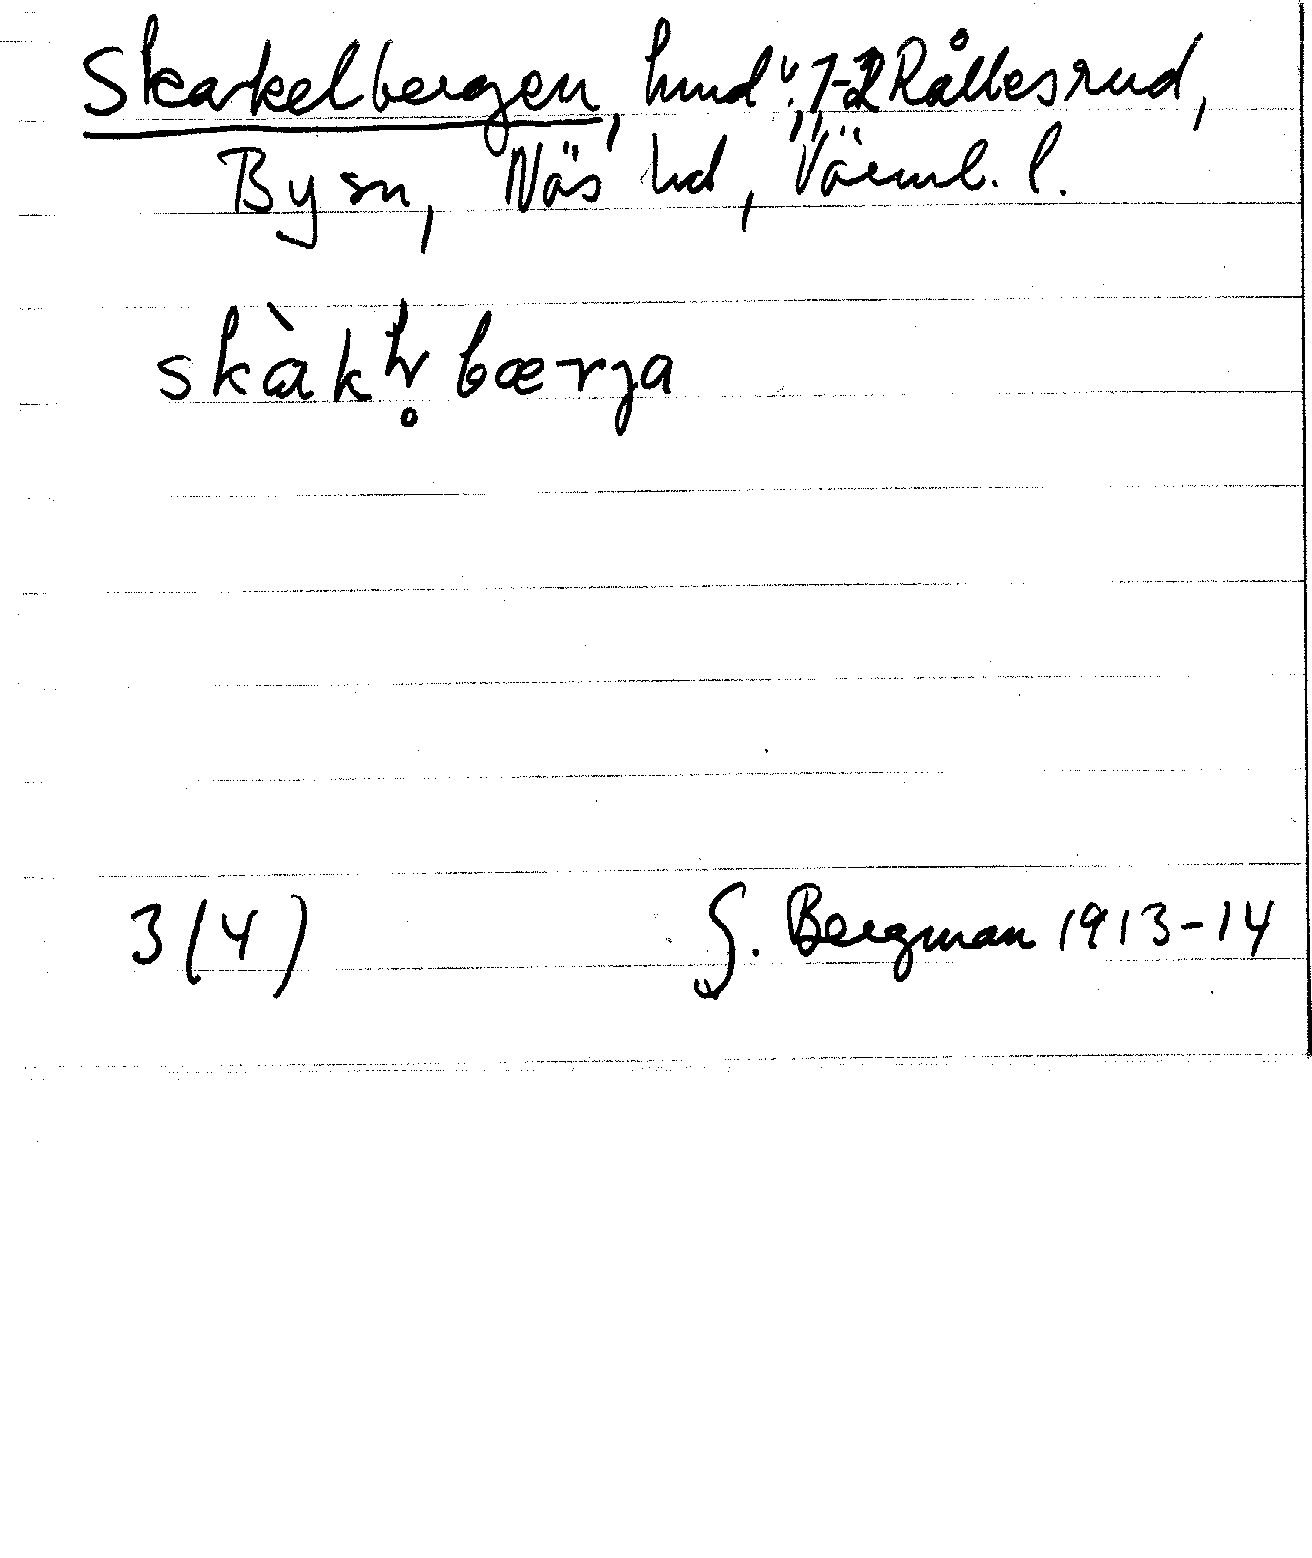 Skakelbergen, hmd u. 1-2 Rållesrud,
By sn, Näs hd, Värml. l.
skàkl̥bærja
3(4) G. Bergman 1913-14